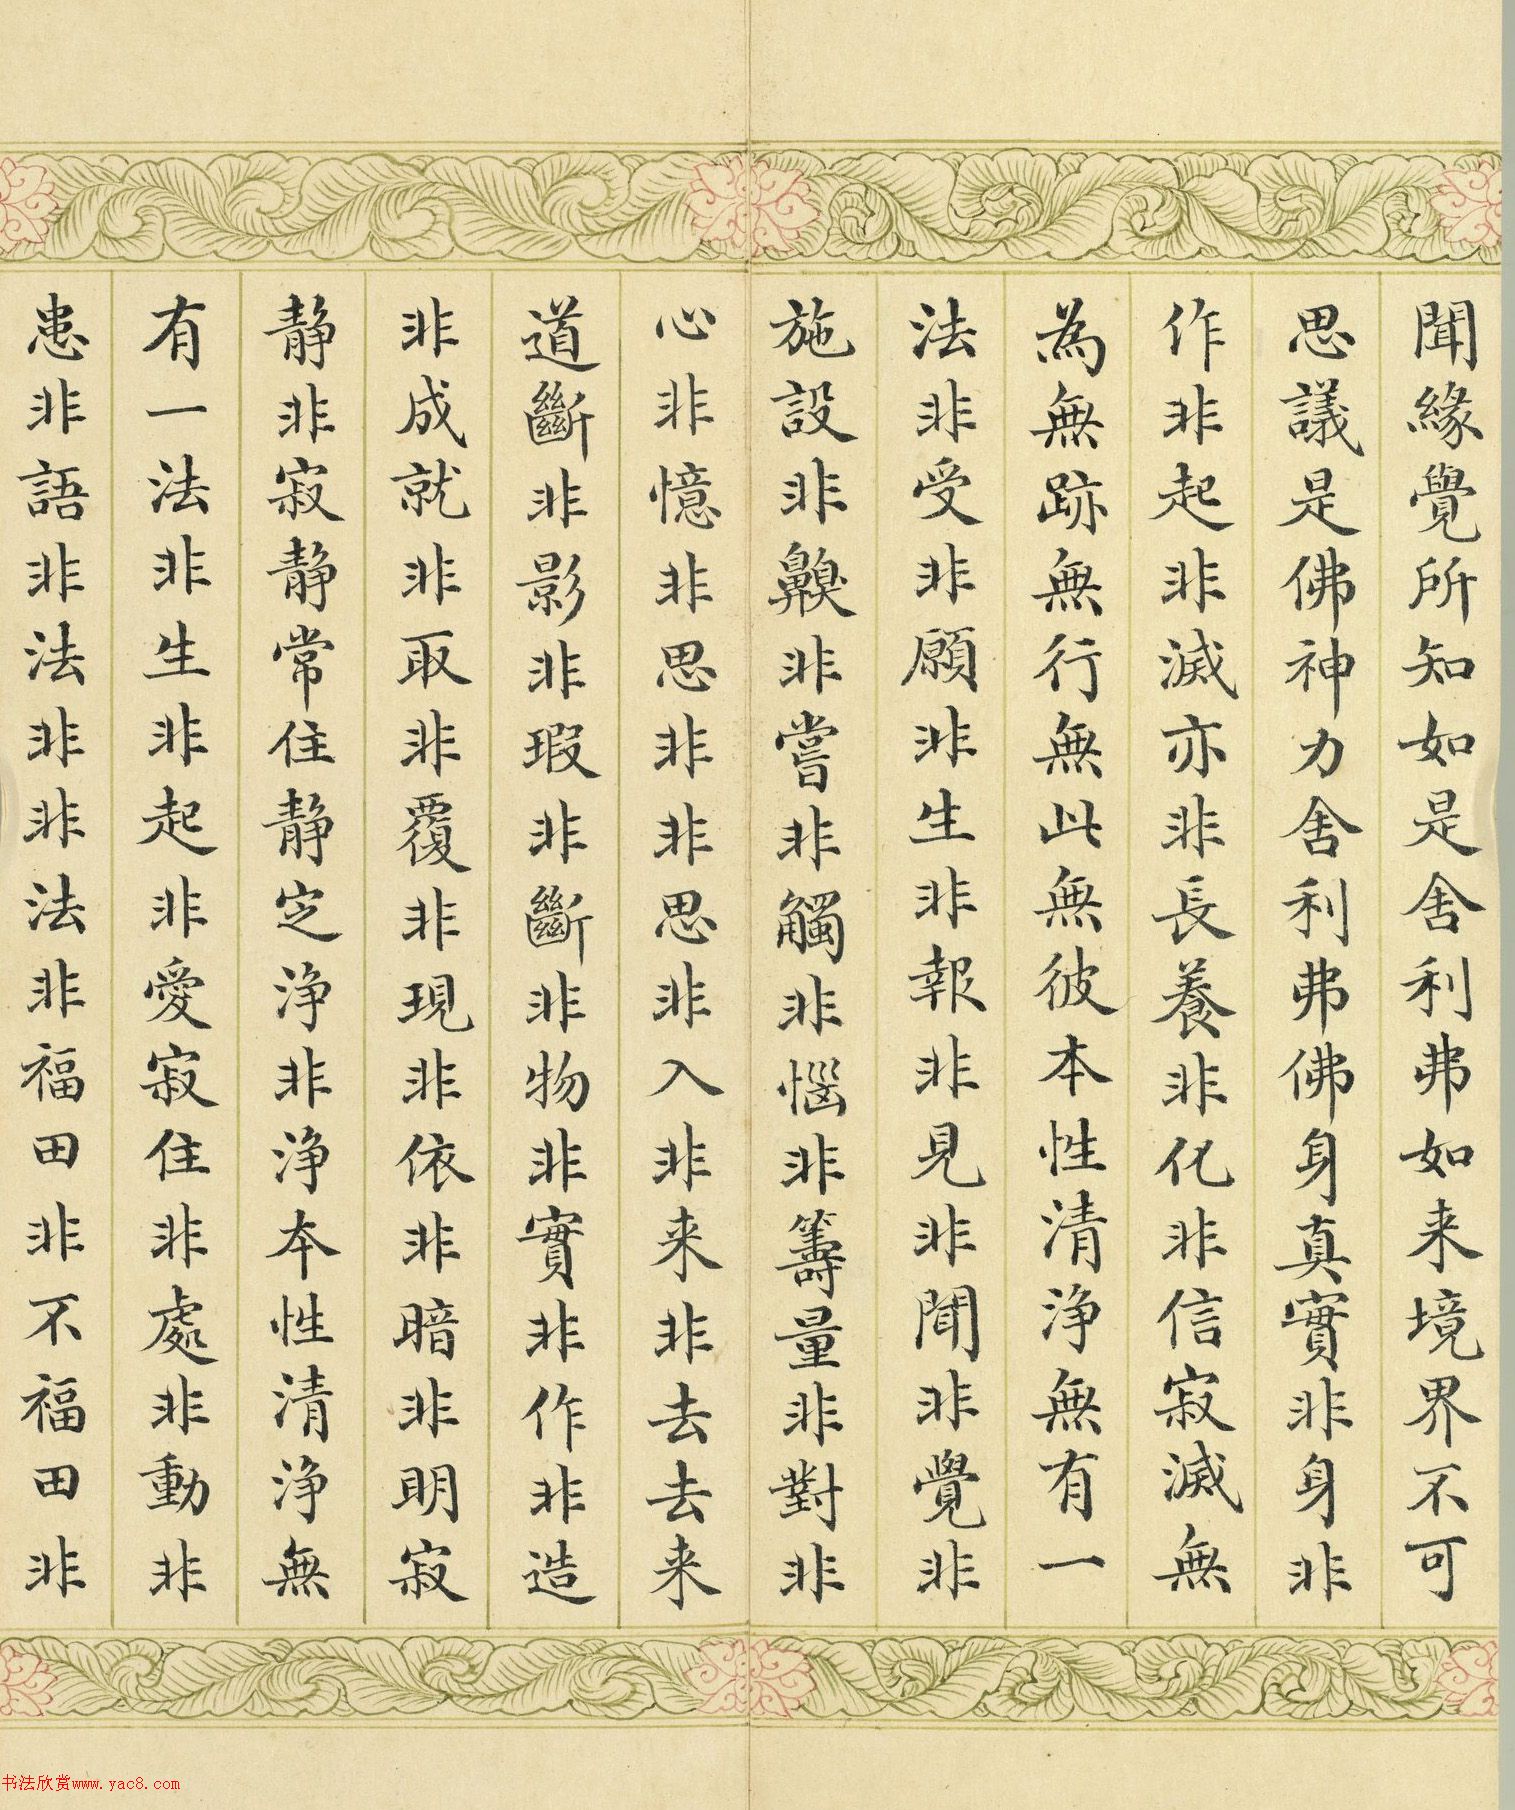 聞緣覺所知如是舍利弗如来境界不可
思議是佛神力舍利弗佛身真實非身非
作非起非滅亦非長養非化非信寂滅無
為無跡無行無此無彼本性清淨無有一
法非受非願非生非報非見非聞非覺非
施設非齅非嘗非觸非惱非籌量非對非
心非憶非思非非思非入非来非去去来
道斷非影非瑕非斷非物非實非作非造
非成就非取非覆非現非依非暗非明寂
静非寂静常住静定淨非淨本性清淨無
有一法非生非起非愛寂住非處非動非
患非語非法非非法非福田非不福田非
书法欣赏www.yac8.com